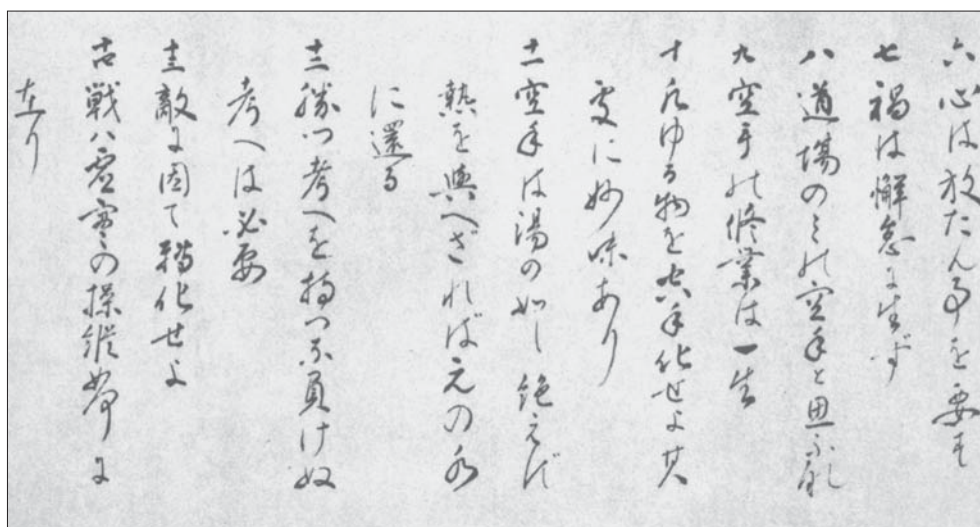 六心は放たん事を要す
七禍は懈怠に生ず
八道場のみの空手と思ふな
九空手の修業は一生
十凡ゆる物を空手化せよ其
処に妙味あり
十一空手は湯の如し絶えず
熱を與へざれば元の水
に還る
十二勝つ考へを持つな負けぬ
考へは必要
十三敵に因て轉化せよ
十四戦は虚実の操縦如何に
在り